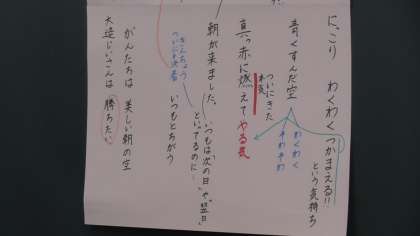 にっこり わくわく つかまえる!!
という気持ち
青くすんだ空
わくわく
そわそわ
ついにきた
本気
真っ赤に燃えて やる気
朝が来ました。いつもは"次の日"や"翌日"
といってるのに…
いつもとちがう
ついに決着
がんたちは 美しい朝の空
大造じいさんは 勝ちたい